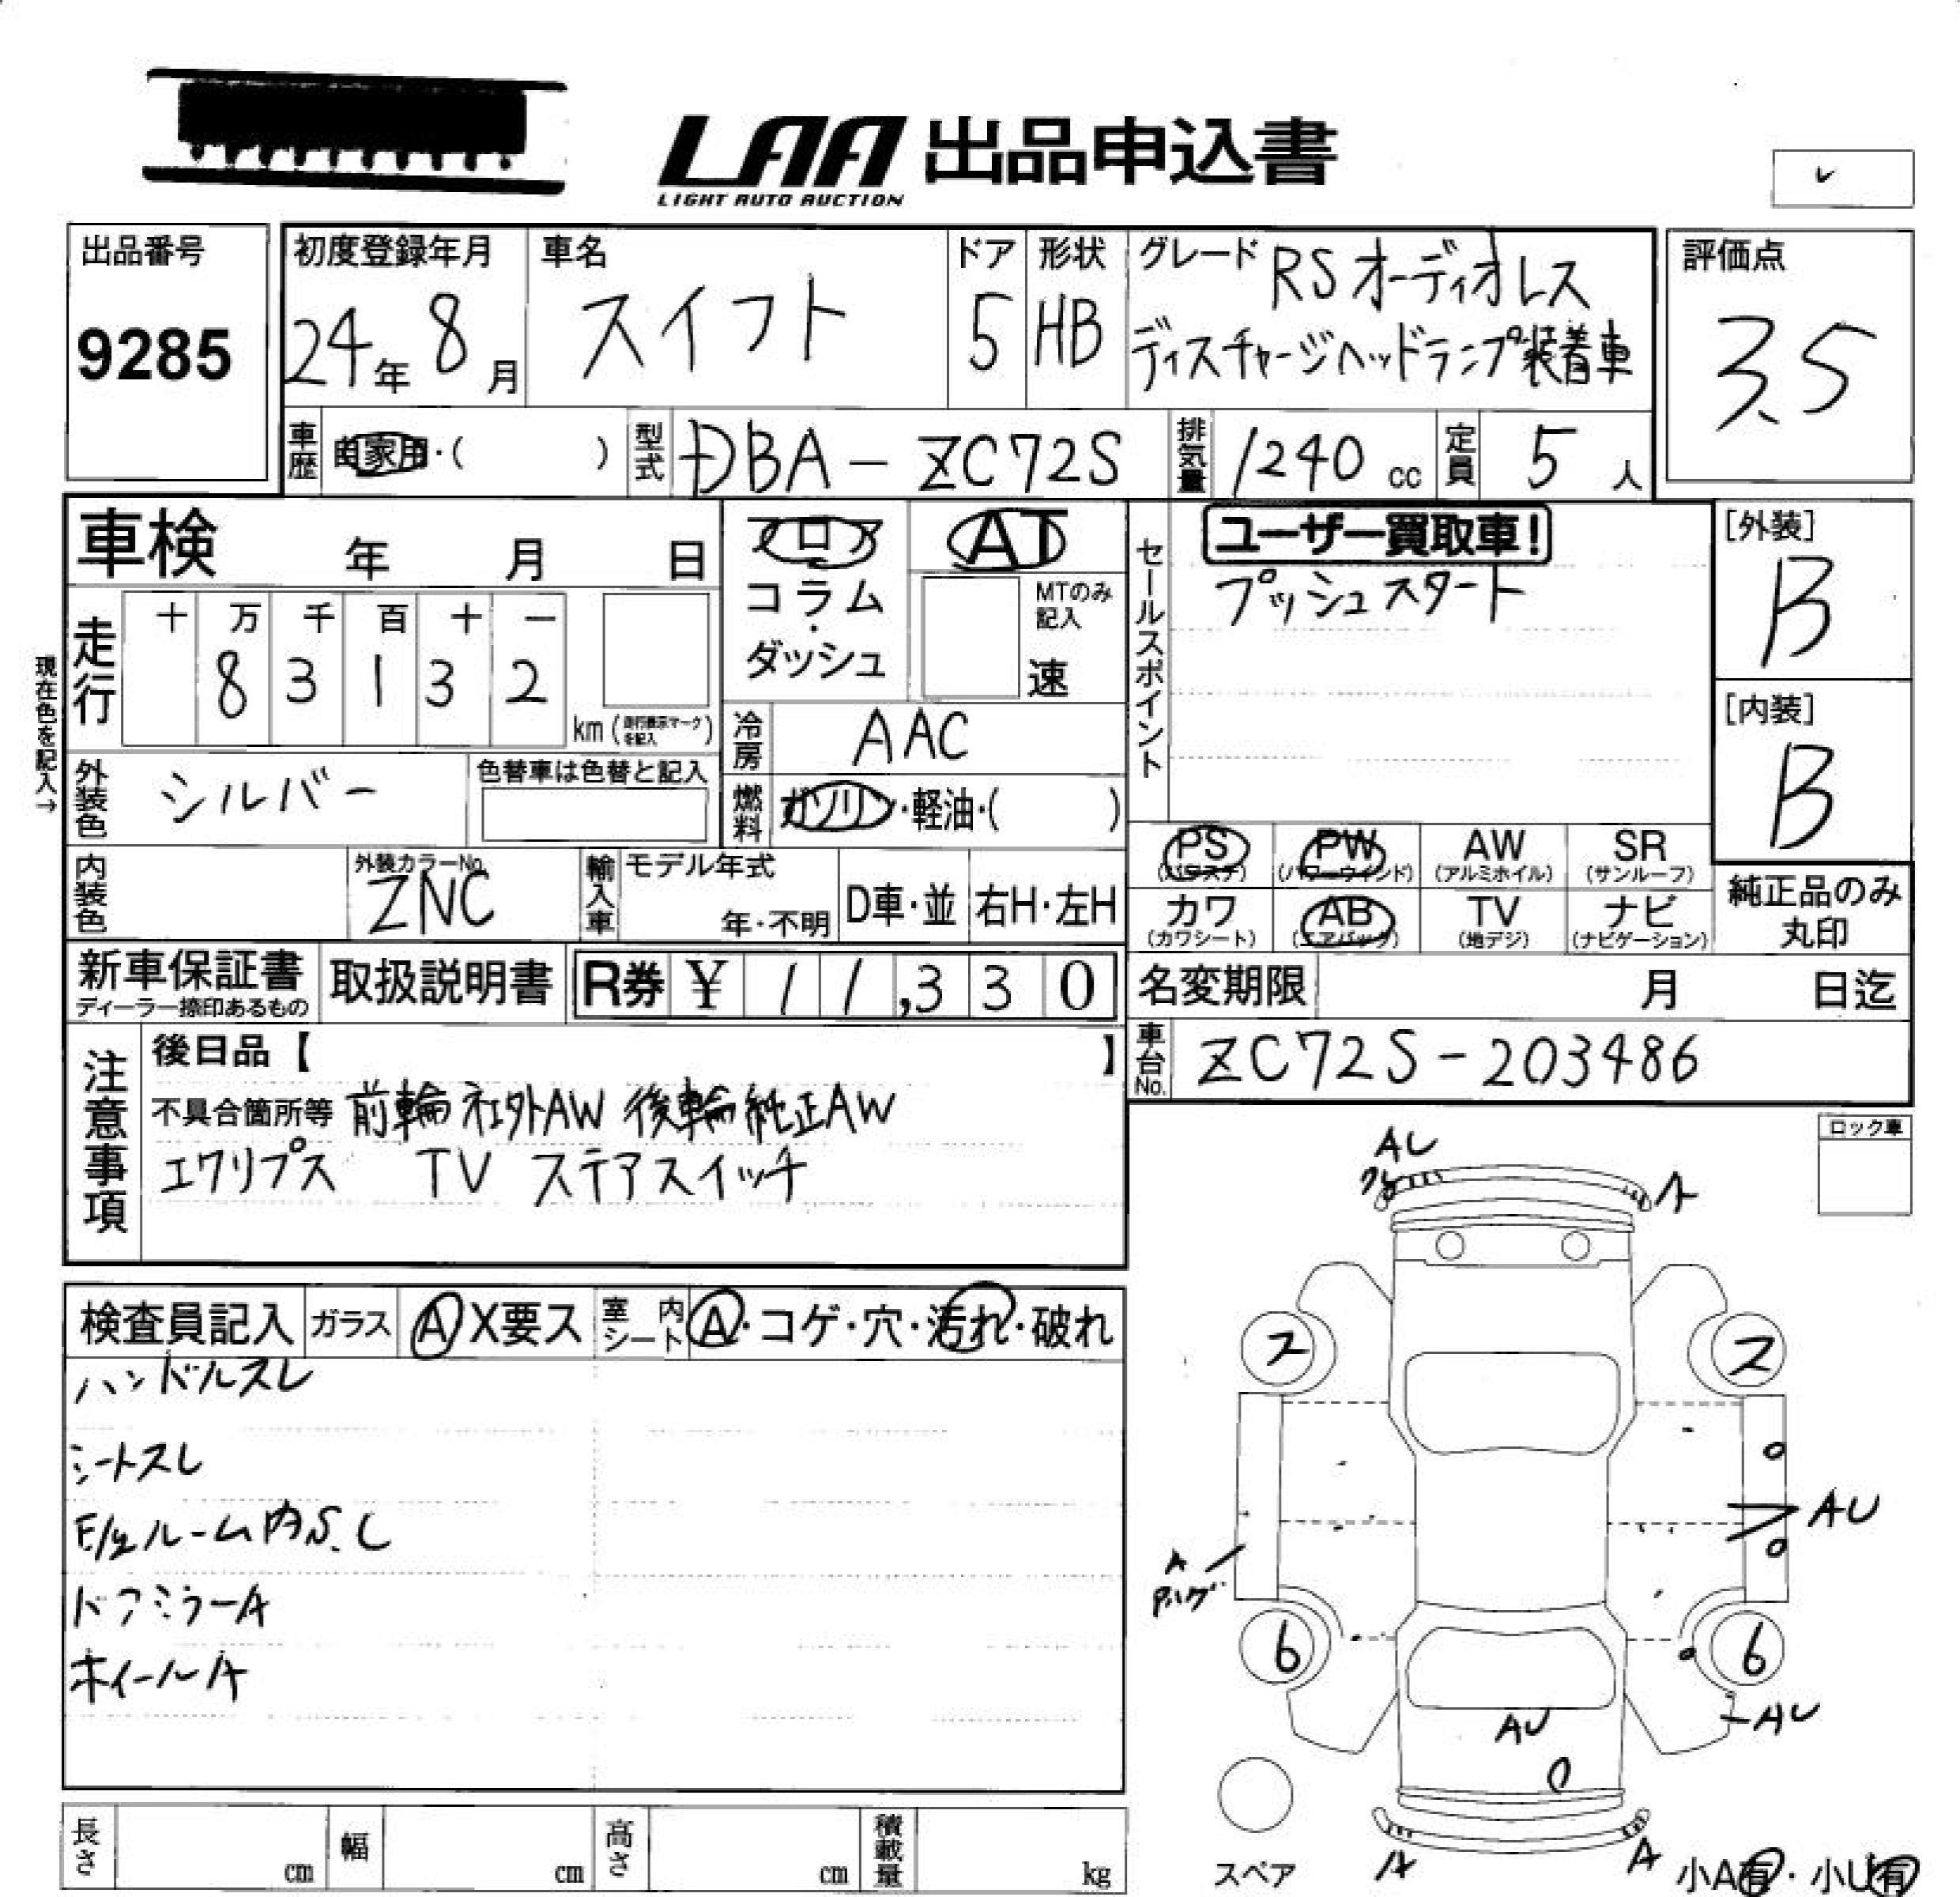 LAA 出品申込書
LIGHT AUTO AUCTION
出品番号
9285
初度登録年月
24年 8月
車名
スイフト
ドア
5
形状
HB
グレード RSオーディオレス
ディスチャージヘッドランプ装着車
評価点
3.5
車歴 自家用・( )
型式 DBA-ZC72S
排気量 1240 cc
定員 5 人
車検 年 月 日
フロア
コラム
・
ダッシュ
AT
MTのみ
記入
速
セールスポイント
ユーザー買取車!
プッシュスタート
[外装]
B
[内装]
B
現在色を記入→
走行
十 万 千 百 十 一
8 3 1 3 2
km(走行表示マークを記入)
冷房 AAC
外装色 シルバー
色替車は色替と記入
燃料 ガソリン・軽油・( )
内装色
外装カラーNo.
ZNC
輸入車
モデル年式
年・不明
D車・並
右H・左H
PS AB
(パワステ)
PW
(パワーウインド)
AW
(アルミホイル)
SR
(サンルーフ)
カワ
(カワシート)
AB
(エアバック)
TV
(地デジ)
ナビ
(ナビゲーション)
純正品のみ
丸印
新車保証書
ディーラー捺印あるもの
取扱説明書
R券 ¥ 11,330
名変期限 月 日迄
車台No. ZC72S-203486
注意事項
後日品【 】
不具合箇所等 前輪社外AW 後輪純正AW
エクリプス TV ステアスイッチ
ロック車
検査員記入
ガラス A X要ス
室内シート A・コゲ・穴・汚れ・破れ
ハンドルスレ
シートスレ
E/gルーム内S.C
ドアミラーA
ホイールA
AU
A
ス
ス
AU
A
6
6
AU
AU
A
A
スペア
小A有・小U有
長さ cm
幅 cm
高さ cm
積載量 kg